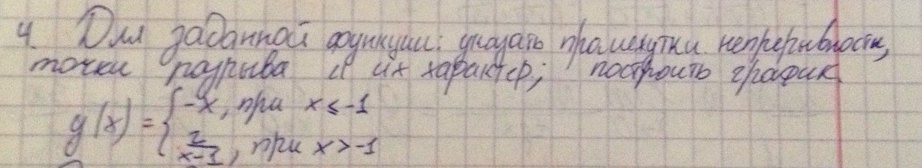 4. Для заданной функции: указать промежутки непрерывности,
точки разрыва и их характер; построить график.
y(x) = { -x, при x ≤ -1
2/(x-1), при x > -1